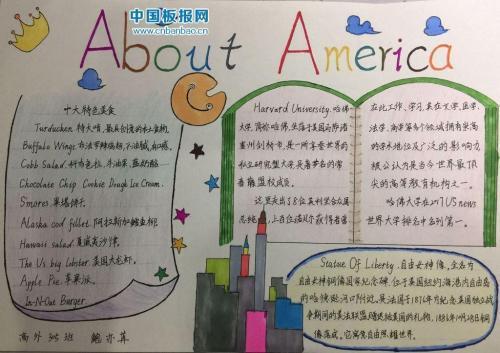 中国板报网
www.cnbanbao.cn
About America
十大特色美食
Turducken 特大啃,最具创意的水上食物.
Buffalo Wings 布法罗辣鸡翅,不油腻,
Cobb Salad 科布色拉,牛油果,蓝奶酪.
Chocolate Chip Cookie Dough Ice Cream.
S'mores 果塔饼干.
Alaska cod fillet 阿拉斯加鳕鱼柳.
Hawaii salad 夏威夷沙律.
The US big lobster 美国大龙虾.
Apple Pie 苹果派.
In-N-Out Burger.
高外 315 班 鲍亦菲
Harvard University.哈佛
大学,简称哈佛,坐落于美国马萨诸
塞州剑桥市,是一所享誉世界的
私立研究型大学,是著名的常
春藤盟校成员.
这里走出了8位美利坚合众国
总统,上百位诺贝尔获得者曾
在此工作、学习,其在文学、医学、
法学、商学等多个领域拥有崇高
的学术地位及广泛的影响力
被公认为是当今世界最顶
尖的高等教育机构之一.
哈佛大学在2017US news
世界大学排名中名列第一.
Statue Of Liberty.自由女神像,全名为
自由女神铜像国家纪念碑,位于美国纽约海港内自由岛
的哈德逊河口附近.是法国于1876年为纪念美国独立战
争期间的美法联盟赠送给美国的礼物,1886年10月28日铜
像落成.它寓意自由照耀世界.